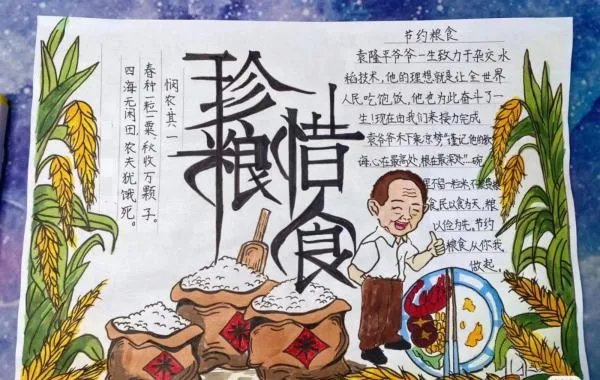 珍惜
粮食
悯农其一
春种一粒粟,秋收万颗子。
四海无闲田,农夫犹饿死。
节约粮食
袁隆平爷爷一生致力于杂交水
稻技术,他的理想就是让全世界
人民吃饱饭,他也为此奋斗了一
生!现在由我们来接力完成
袁爷爷禾下乘凉梦"谨记他的教
诲,心在最高处,根在最深处".碗
里不留一粒米,不
食,民以食为天,粮
以俭为先。节约
粮食从你我
做起.